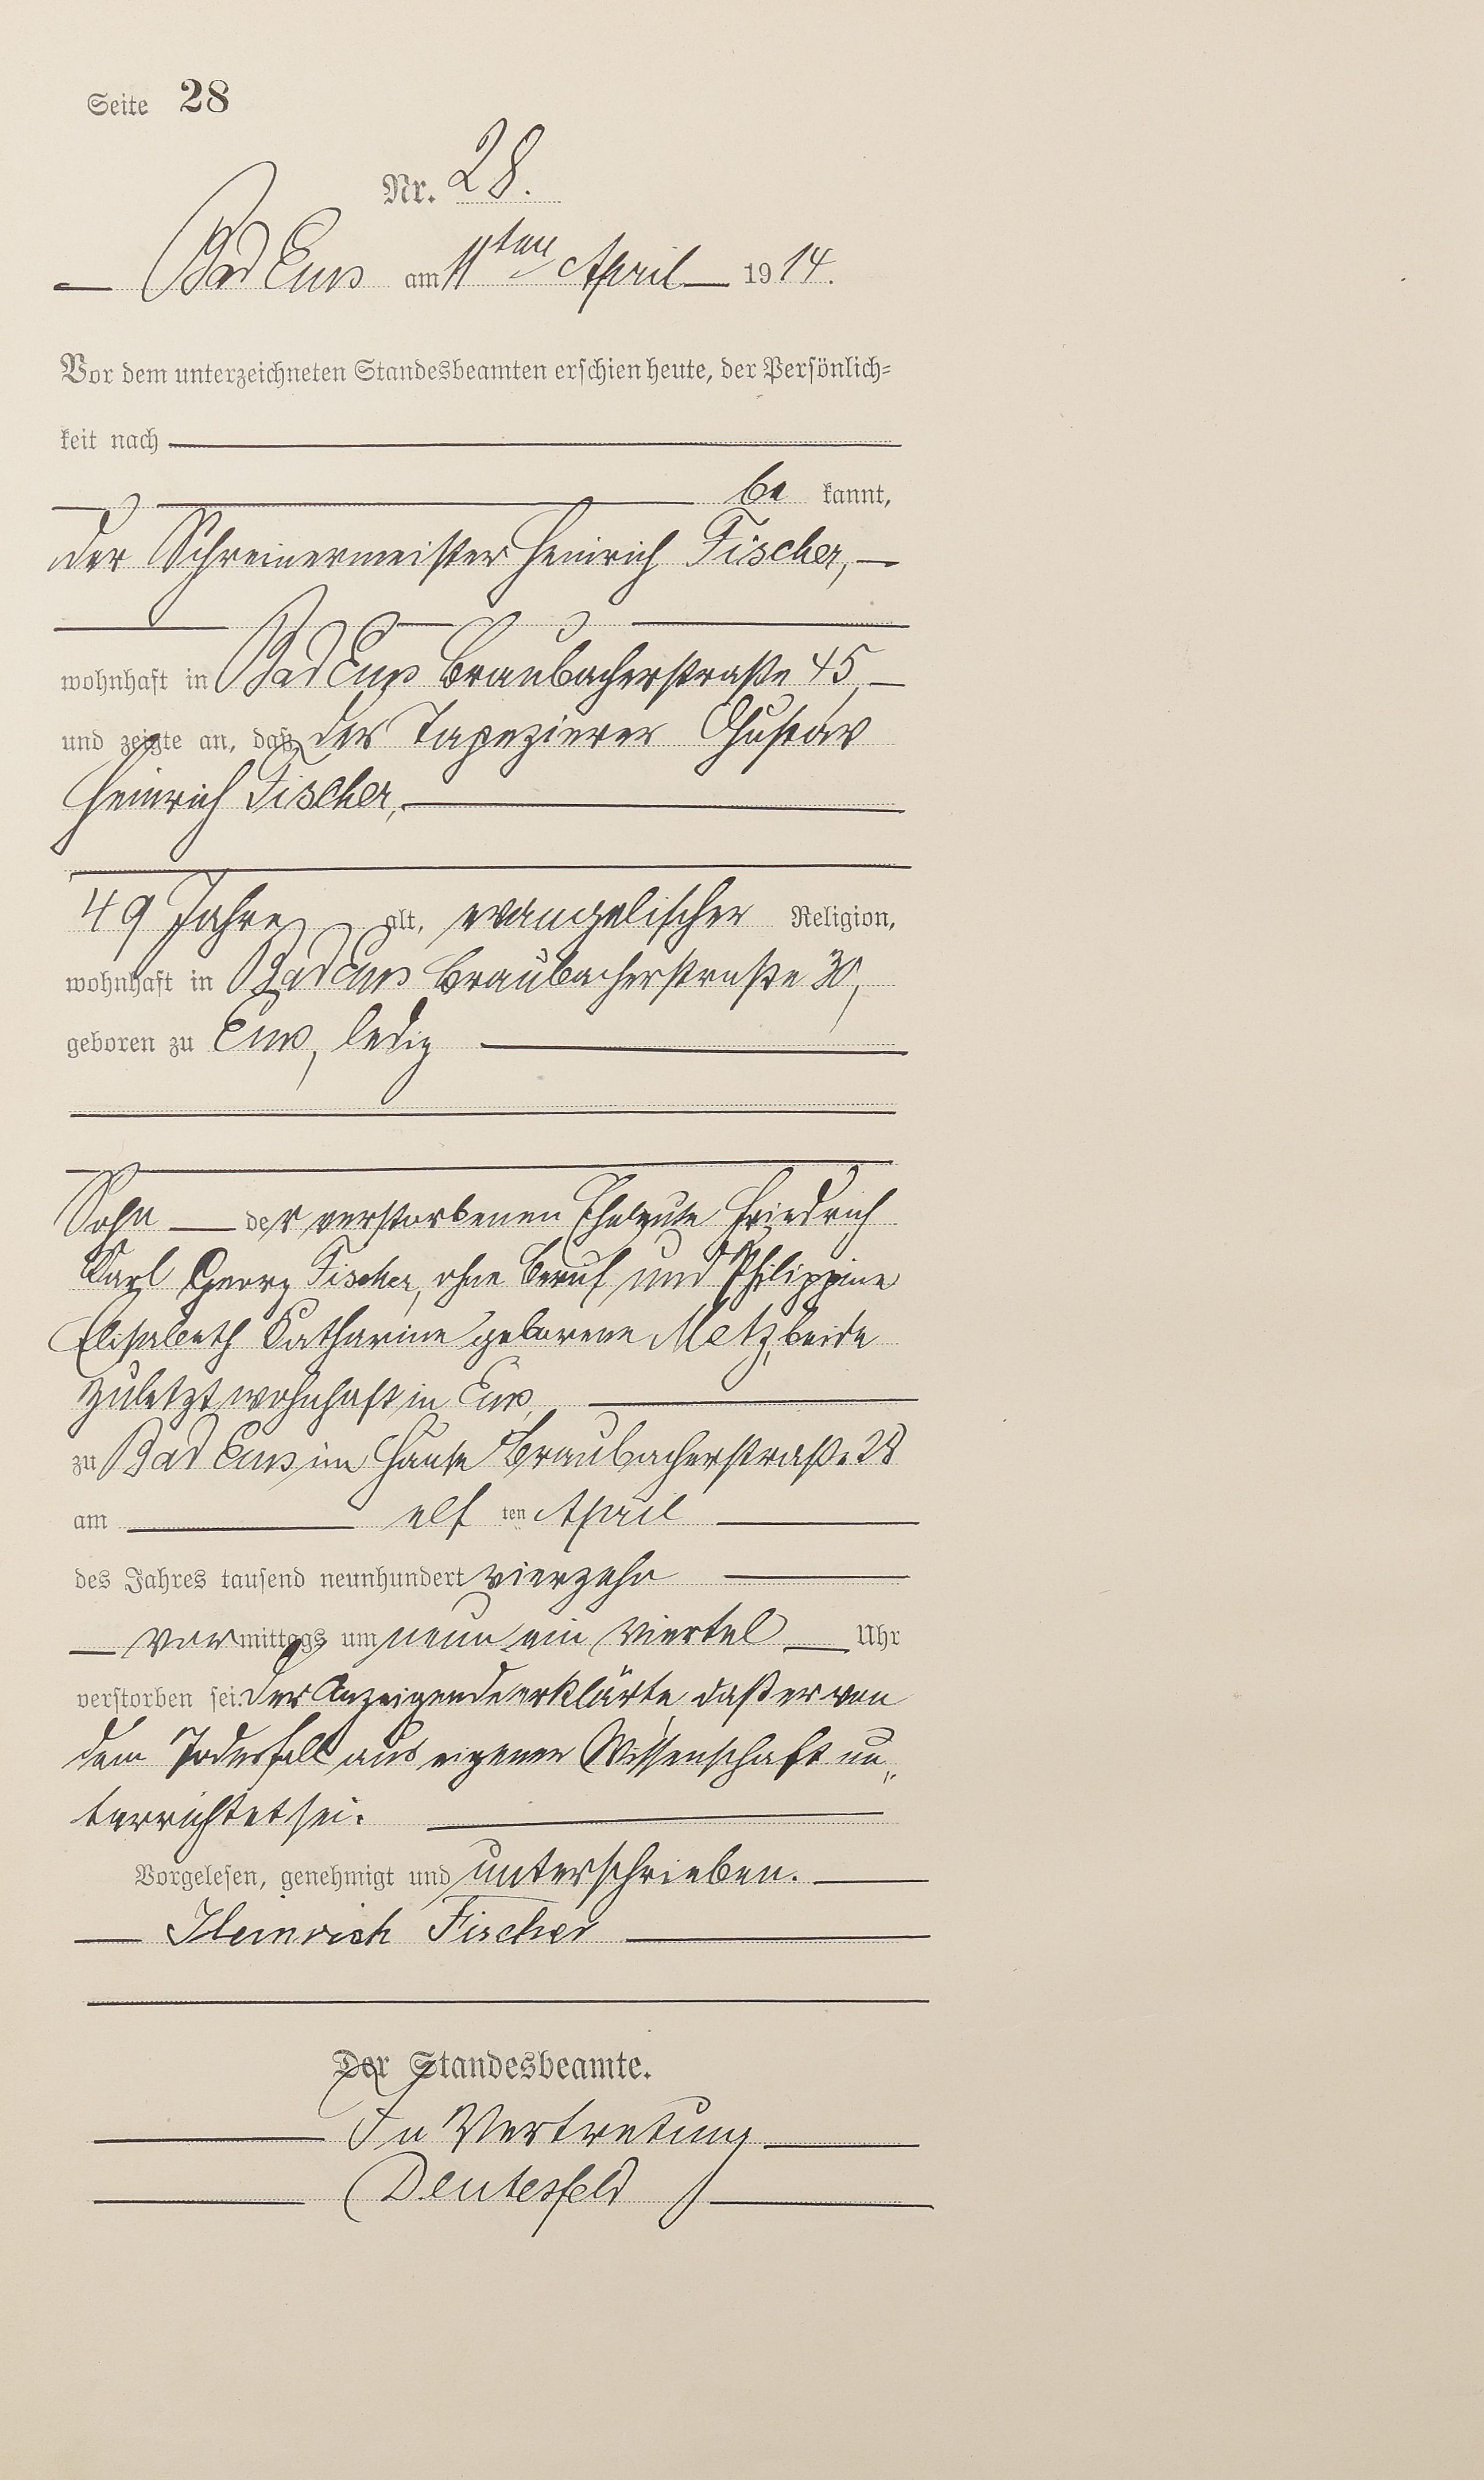 Seite 28
Nr. 28.
Bad Ems am 11ten April 1914.
Vor dem unterzeichneten Standesbeamten erschien heute, der Persönlich=
keit nach
be kannt,
der Schreinermeister Heinrich Fischer,
wohnhaft in Bad Ems Braubacherstraße 45,
und zeigte an, daß der Tapezierer Gustav
Heinrich Fischer,
49 Jahre alt, evangelischer Religion,
wohnhaft in Bad Ems Braubacherstraße 30,
geboren zu Ems, ledig
Sohn der verstorbenen Eheleute Friedrich
Karl Georg Fischer, ohne Beruf und Philippine
Elisabeth Katharine geborene Metz, beide
zuletzt wohnhaft in Ems,
zu Bad Ems im Hause Braubacherstraße 28
am elf ten April
des Jahres tausend neunhundert vierzehn
vormittags um neun ein viertel Uhr
verstorben sei. Der Anzeigende erklärte, daß er von
dem Todesfall aus eigener Wissenschaft un„
terrichtet sei.
Vorgelesen, genehmigt und unterschrieben.
Heinrich Fischer
Der Standesbeamte.
In Vertretung